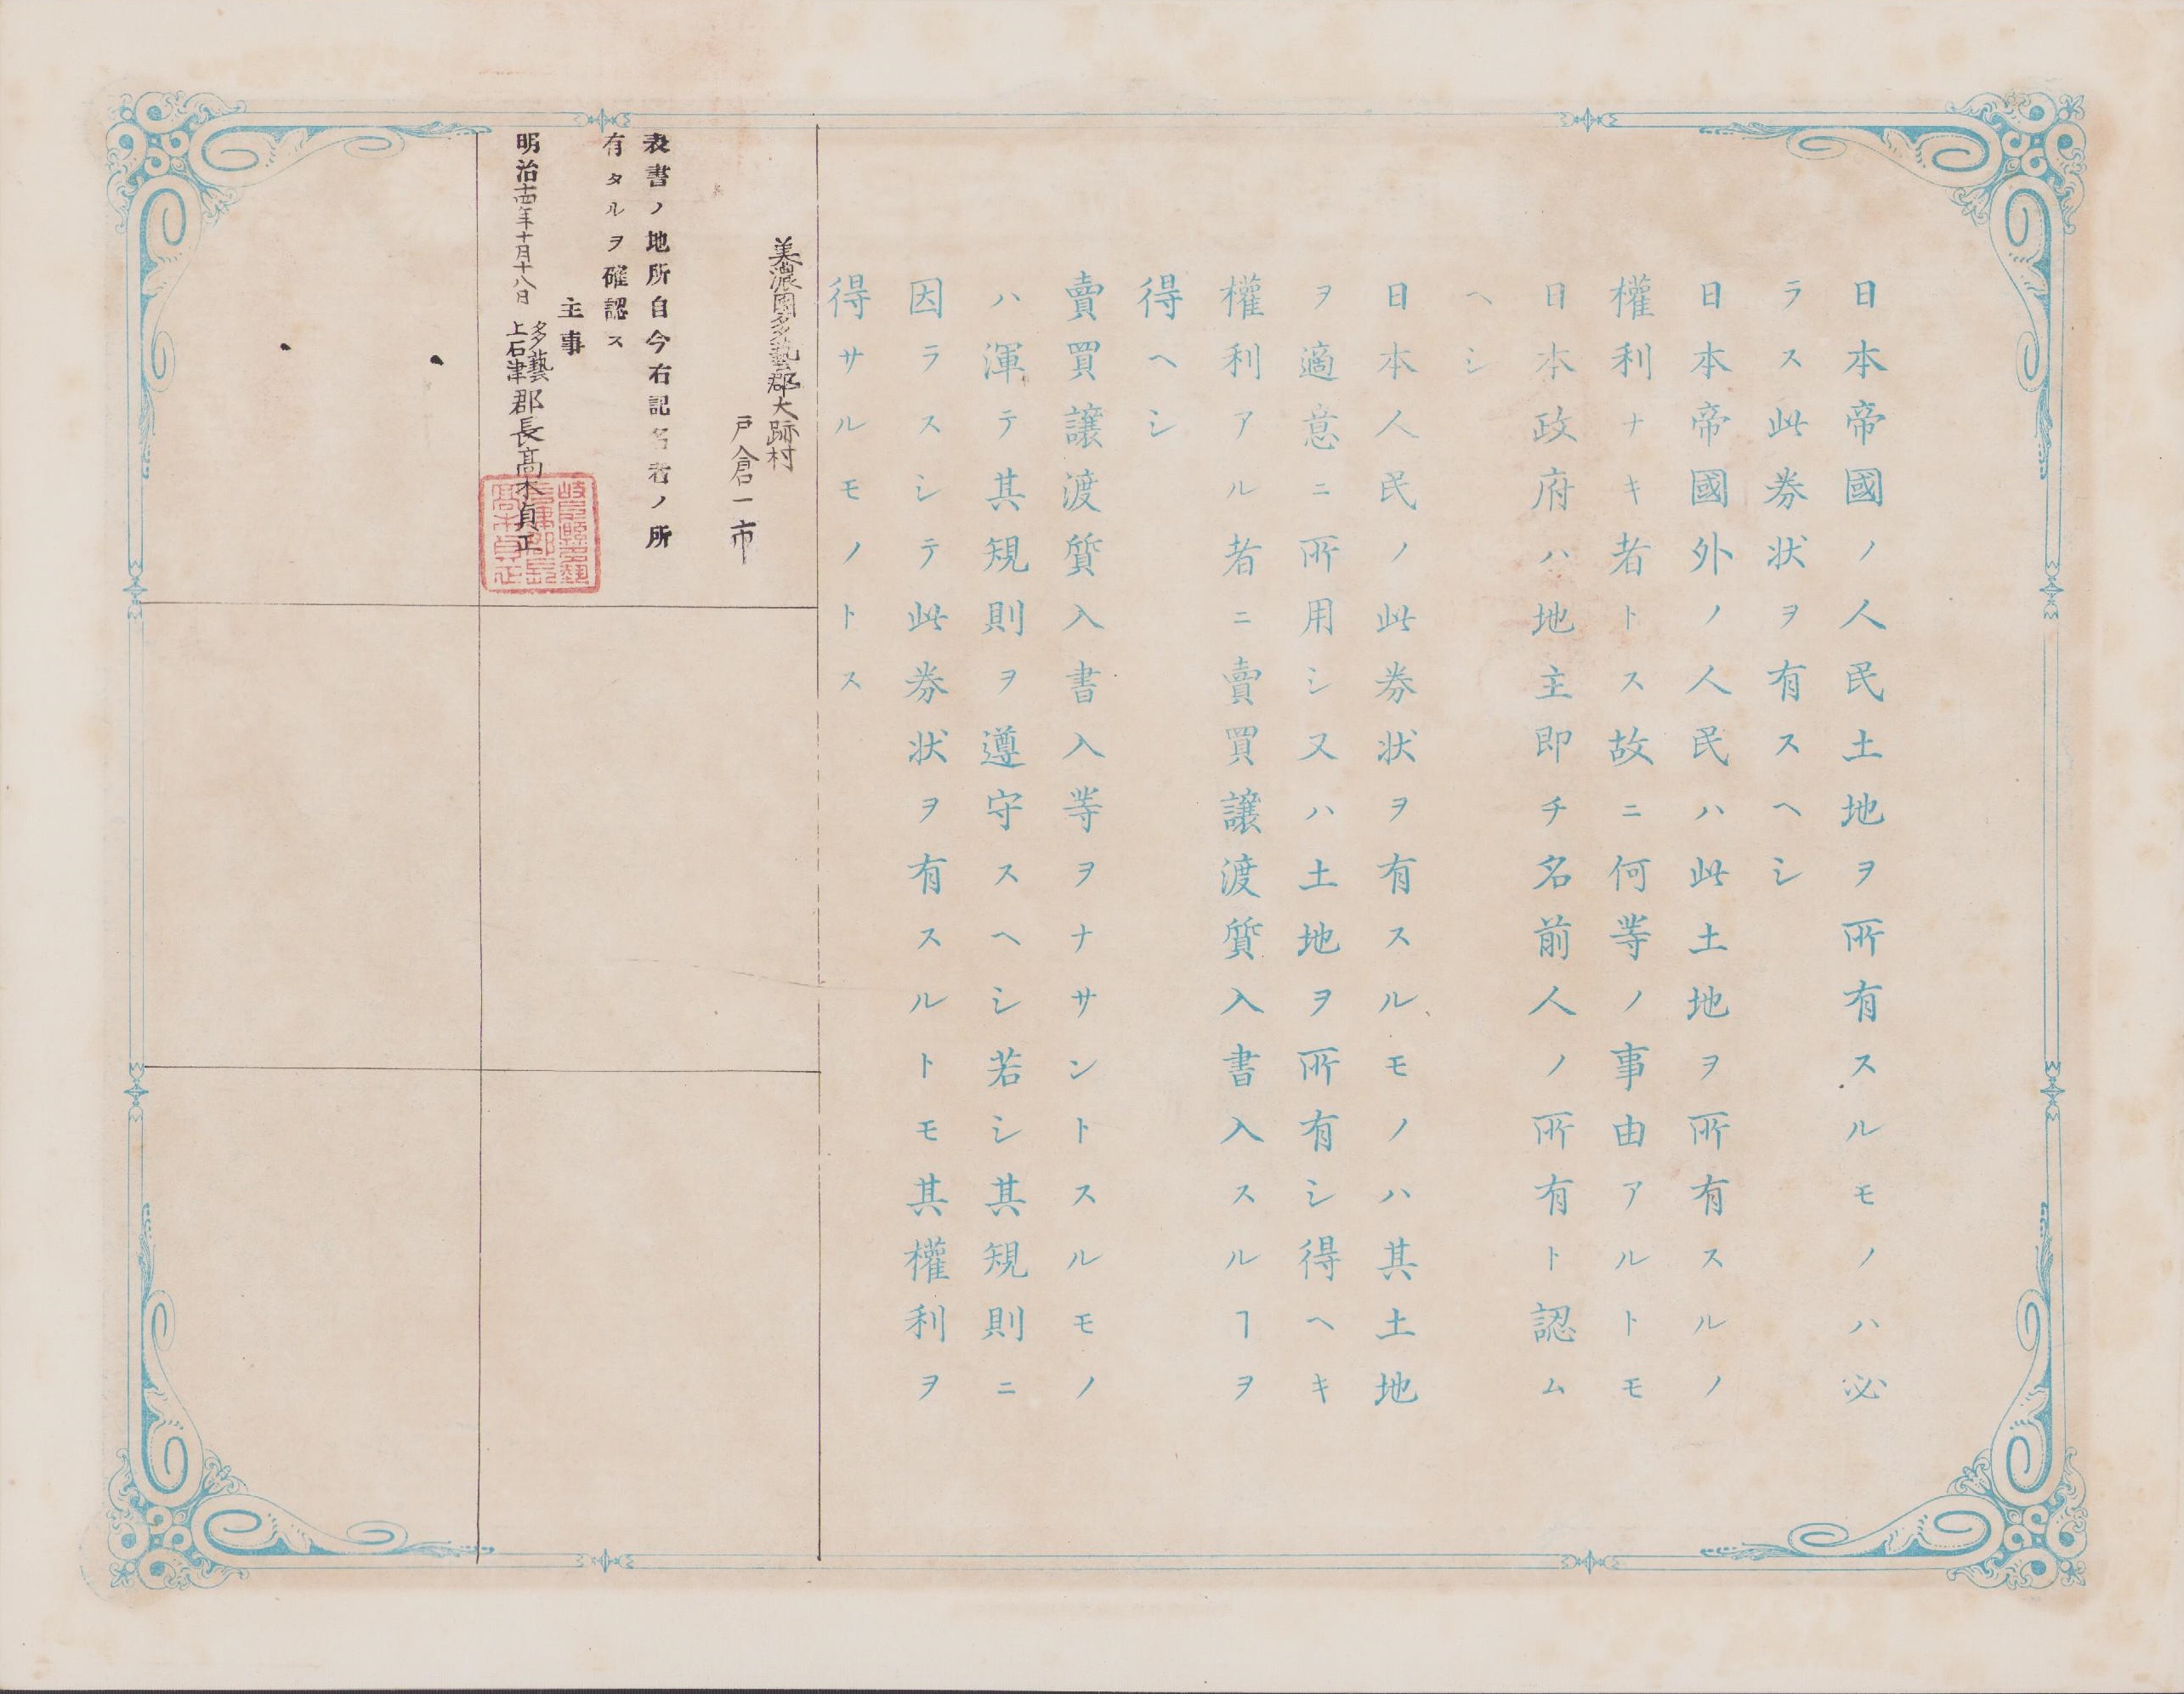 日本帝國ノ人民土地ヲ所有スルモノハ必
ラス此券状ヲ有スヘシ
日本帝國外ノ人民ハ此土地ヲ所有スルノ
權利ナキ者トス故ニ何等ノ事由アルトモ
日本政府ハ地主即チ名前人ノ所有ト認ム
ヘシ
日本人民ノ此券状ヲ有スルモノハ其土地
ヲ適意ニ所用シ又ハ土地ヲ所有シ得ヘキ
權利アル者ニ賣買讓渡質入書入スルヿヲ
得ヘシ
賣買讓渡質入書入等ヲナサントスルモノ
ハ渾テ其規則ヲ遵守スヘシ若シ其規則ニ
因ラスシテ此券状ヲ有スルトモ其權利ヲ
得サルモノトス
美濃國多藝郡大跡村
戸倉一市
表書ノ地所自今右記名者ノ所
有タルヲ確認ス
主事
明治十四年十月十八日 多藝上石津郡長髙木貞正
岐阜縣多藝
髙木貞正